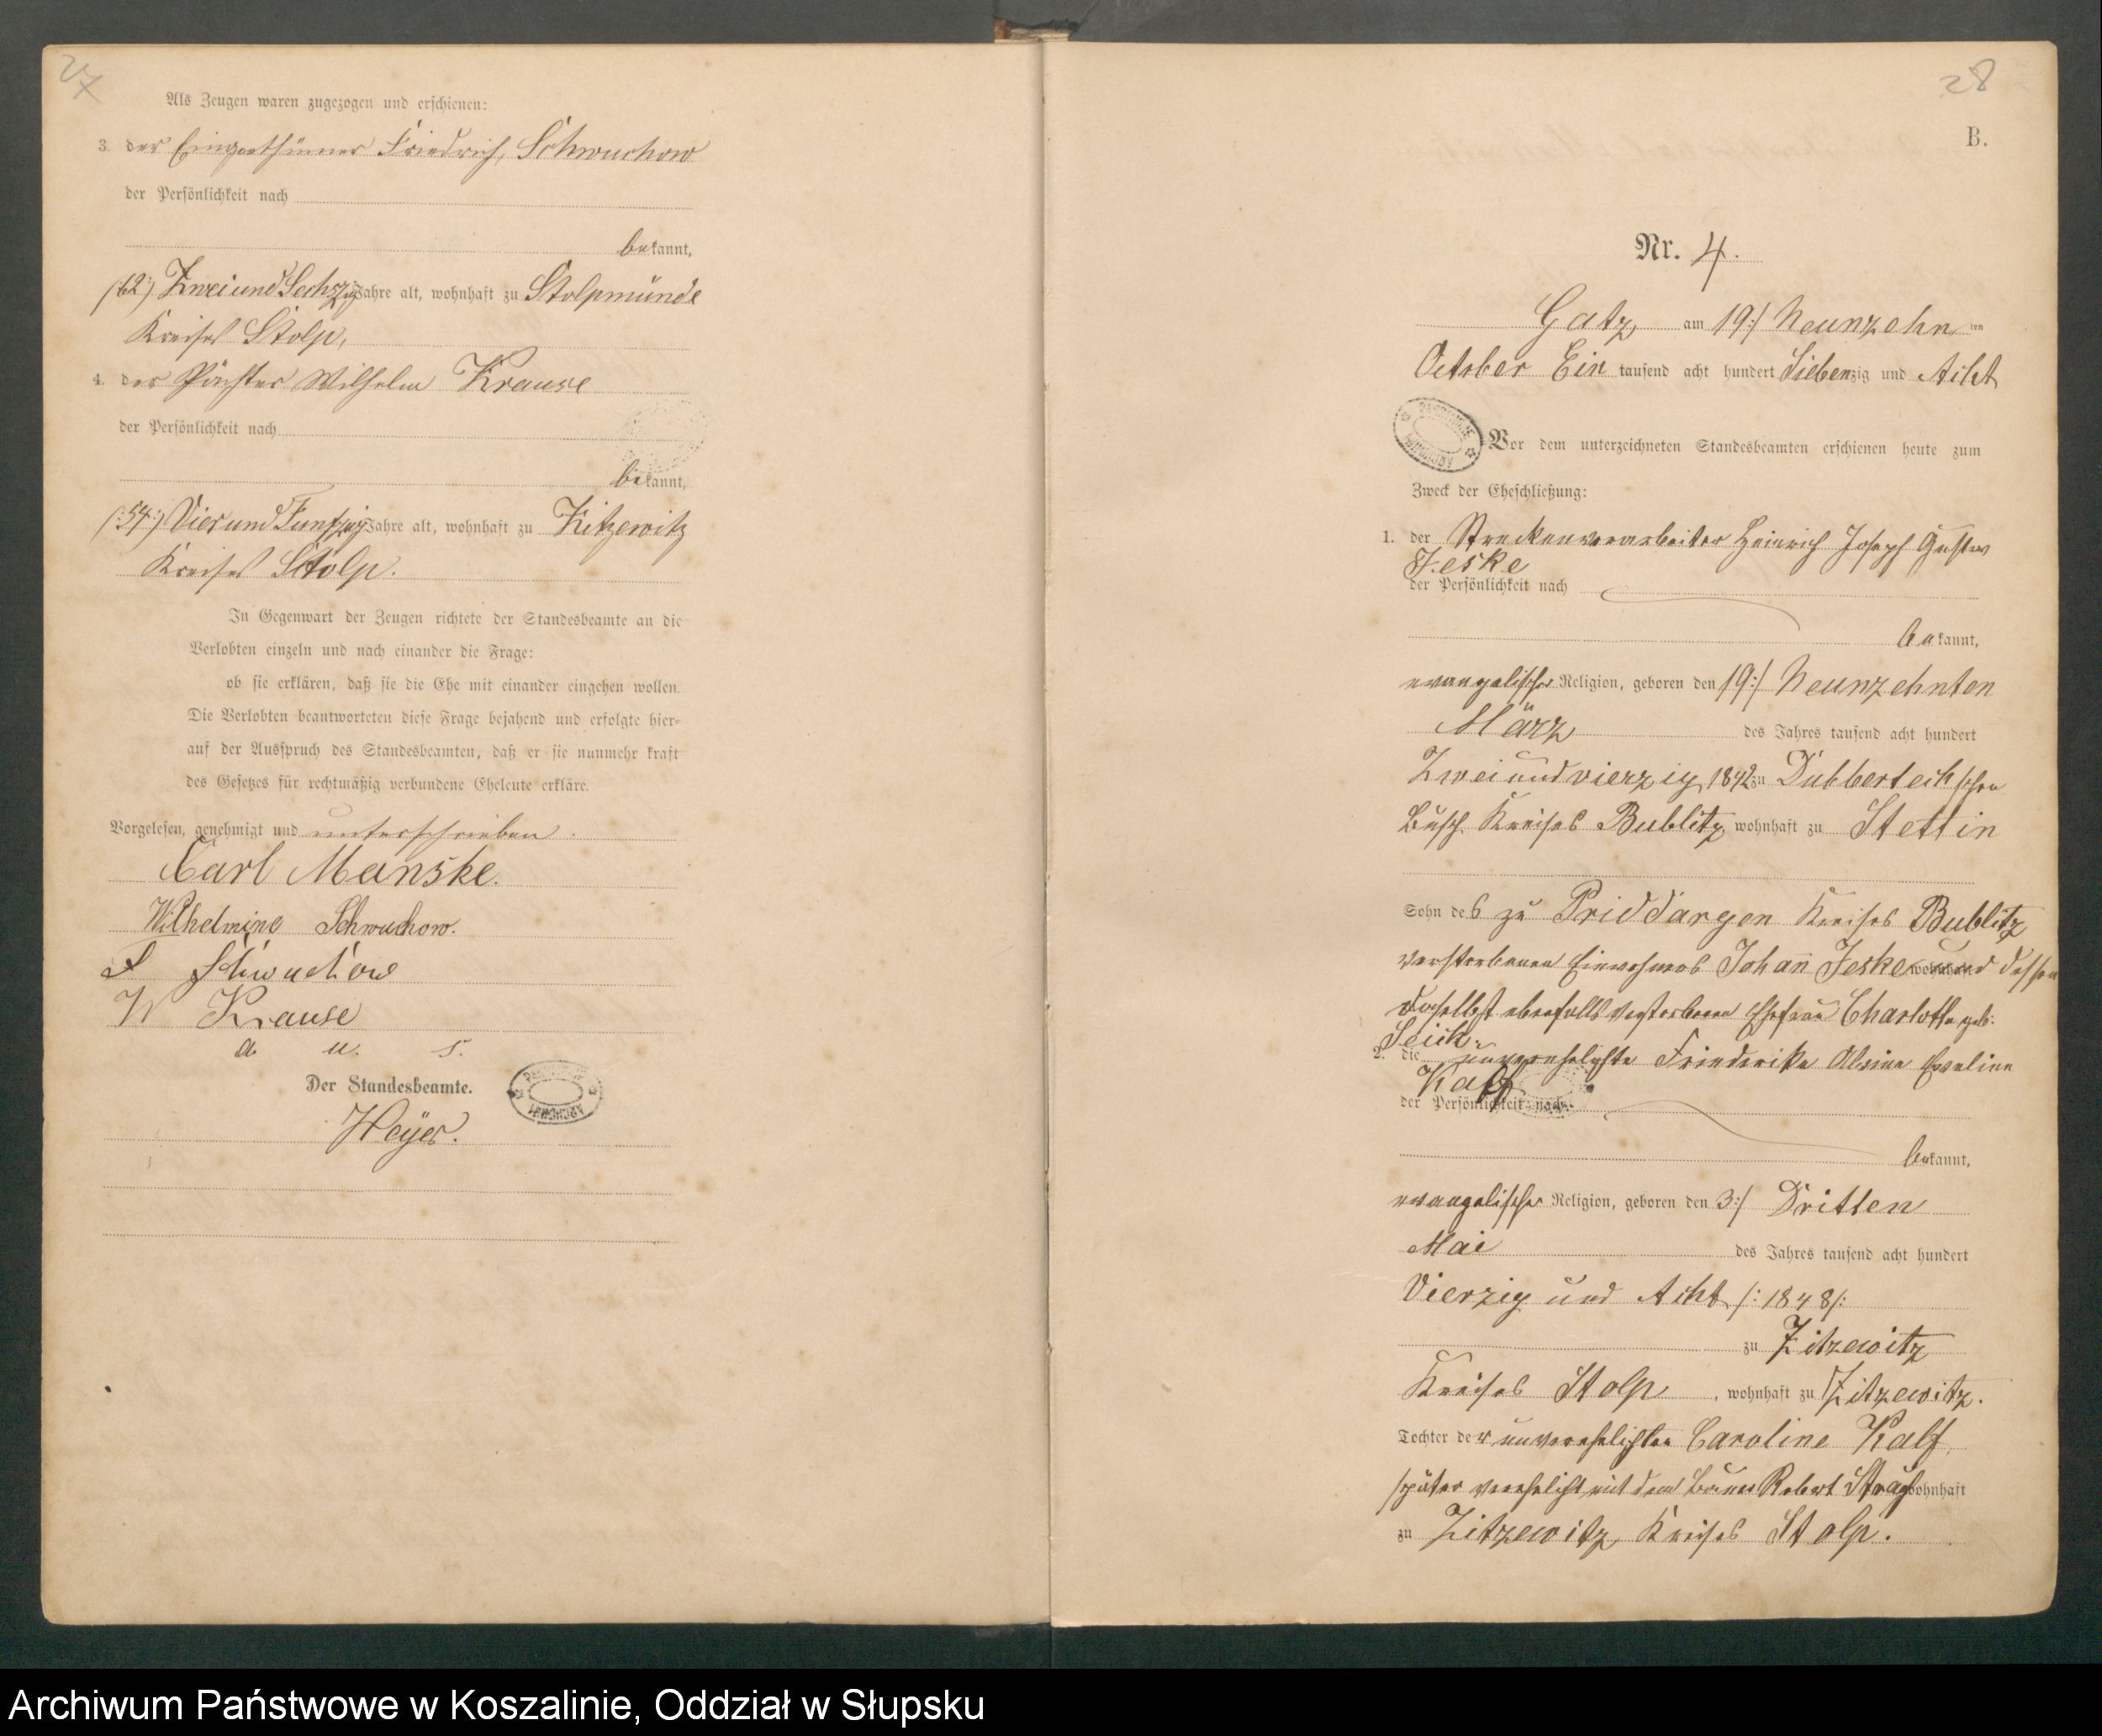 27
Als Zeugen waren zugezogen und erschienen:
3. der Eigenthümer Friedrich Schwuchow
der Persönlichkeit nach
bekannt,
(62:) Zwei und Sechszig Jahre alt, wohnhaft zu Stolpmünde
Kreises Stolp,
4. der Pächter Wilhelm Krause
der Persönlichkeit nach
bekannt,
(:54:) Vier und Funfzig Jahre alt, wohnhaft zu Zitzewitz
Kreises Stolp.
In Gegenwart der Zeugen richtete der Standesbeamte an die
Verlobten einzeln und nach einander die Frage:
ob sie erklären, daß sie die Ehe mit einander eingehen wollen.
Die Verlobten beantworteten diese Frage bejahend und erfolgte hier-
auf der Ausspruch des Standesbeamten, daß er sie nunmehr kraft
des Gesetzes für rechtmäßig verbundene Eheleute erkläre.
Vorgelesen, genehmigt und unterschrieben.
Carl Manske.
Wilhelmine Schwuchow.
F Schwuchow
W Krause
a. u. s.
Der Standesbeamte.
Heyer.
28
B.
Nr. 4.
Gatz, am 19:/ Neunzehn ten
October Ein tausend acht hundert Siebenzig und Acht
Vor dem unterzeichneten Standesbeamten erschienen heute zum
Zweck der Eheschließung:
1. der Streckenvorarbeiter Heinrich Joseph Gustav
Jeske
der Persönlichkeit nach
bekannt,
evangelischer Religion, geboren den 19:/ Neunzehnten
März des Jahres tausend acht hundert
Zwei und vierzig 1842 zu Dubberteich schen
Busch Kreises Bublitz, wohnhaft zu Stettin
Sohn des zu Priddargen Kreises Bublitz
verstorbenen Einwohners Johann Jeske wohnhaft und dessen
daselbst ebenfalls verstorbenen Ehefrau Charlotte geb.
Seick.
2. die unverehelichte Friederike Albine Evaline
Kalf
der Persönlichkeit nach
bekannt,
evangelischer Religion, geboren den 3:/ Dritten
Mai des Jahres tausend acht hundert
Vierzig und Acht /: 1848 /:
zu Zitzewitz
Kreises Stolp, wohnhaft zu Zitzewitz.
Tochter der unverehelichten Caroline Kalf,
später verehelicht mit dem Bauer Robert wohnhaft
zu Zitzewitz, Kreises Stolp.
Archiwum Państwowe w Koszalinie, Oddział w Słupsku